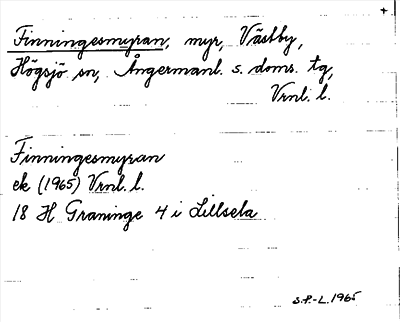 Finningesmyran, myr, Västby,
Högsjö sn, Ångermanl. s. doms. tg,
Vrnl. l.
Finningesmyran
ek (1965) Vrnl. l.
18 H Graninge 4 i Lillsela
S.P.-L. 1965